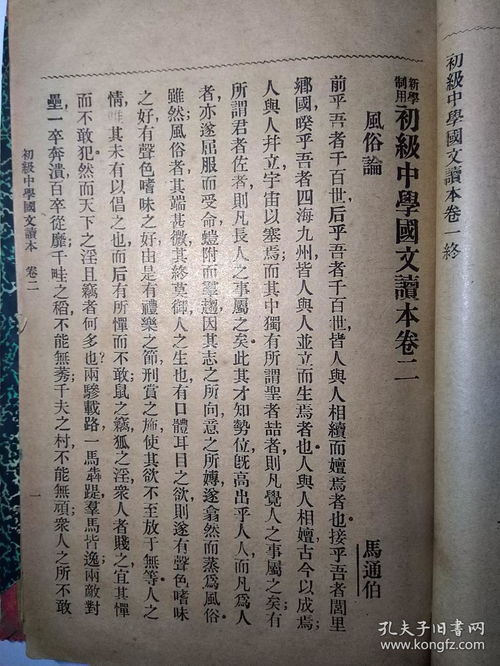 初級中學國文讀本卷一終
新學制用 初級中學國文讀本卷二
風俗論
馬通伯
前乎吾者千百世后乎吾者千百世皆人與人相續而嬗焉者也接乎吾者閭里
鄉國暌乎吾者四海九州皆人與人並立而生焉者也人與人相嬗古今以成焉;
人與人幷立宇宙以塞焉;而其中獨有所謂聖者喆者則凡覺人之事屬之矣有
所謂君者佐者則凡長人之事屬之矣此其才知勢位旣高出乎人人而凡爲人
者亦遂屈服而受命螘附而羣趨因其志之所向意之所嫥遂翕然而蒸爲風俗
雖然;風俗者其端甚微其終莫御人之生也有口體耳目之欲則遂有聲色嗜味
之好有聲色嗜味之好由是有禮樂之節刑賞之施使其欲不至放于無等人之
情惟其未有以倡之也而后有所憚而不敢鼠之竊狐之淫衆人者賤之宜其憚
而不敢犯然而天下之淫且竊者何多也?兩驂載路一馬犇踶羣馬皆逸兩敵對
壘一卒奔潰百卒從靡千畦之稻不能無莠千夫之村不能無頑衆人之所不敢
初級中學國文讀本 卷二
一
孔夫子旧书网
www.kongfz.com